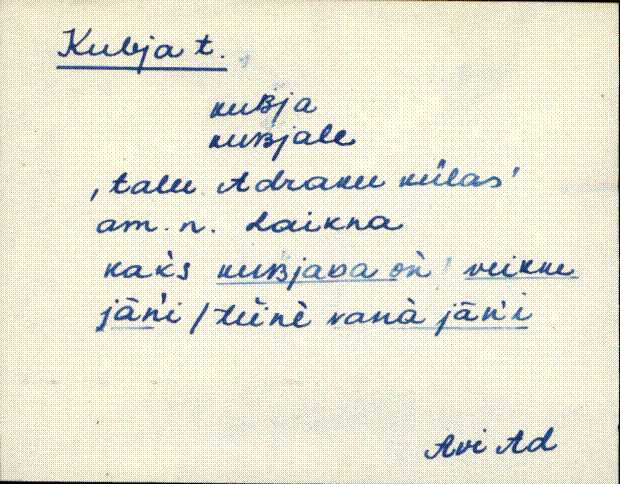 Kubja t.
kuʙja
kuʙjalle
‚talu Adraku külas’
am. n. Laikna
kak̀s kuʙjaʋa on̆ veikke
jäńi / tèine vanà jäńi
Avi Ad